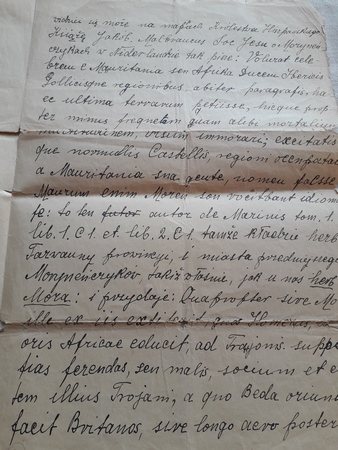 widzieć się może na mapach Królestwa Hiszpańskiego
Książą Jakib. Malbrancus Soc Jesu o Moryneń-
czykach w Niderlandzie tak pisze: Volunt cele-
brem e Mauritania seu Afrika Ducem Ibericis
Gallicisque regionibus, abiter paragratis ha-
ec ultima terrarum petiisse, hucque prop
ter minus frequetem quam alibi mortalium
immorari; excitatis
que nonnullis Castellis, regioni occupatae
a Mauritania sua gente, nomen
Maurum enim Moren son vocitbant idioma
te: to ten autor de Marinus tom. 1.
lib. 1. C 1. et lib. 2. C 1. tamże kładzie herb
Tarvanny prowincyi, i miasta przedniejszego
Moryneńczyków, takiż właśnie, jak u nas herb
Mora: i przydaje: Quapropter sive M
ille ex iis extiterit, quos Homerus,
oris Africae educit, ad Trojanis supp
fias ferendas, seu malis, socium et c
tem illius Trojani, a quo Beda oriun
facit Britanos, sive longo aevo poster